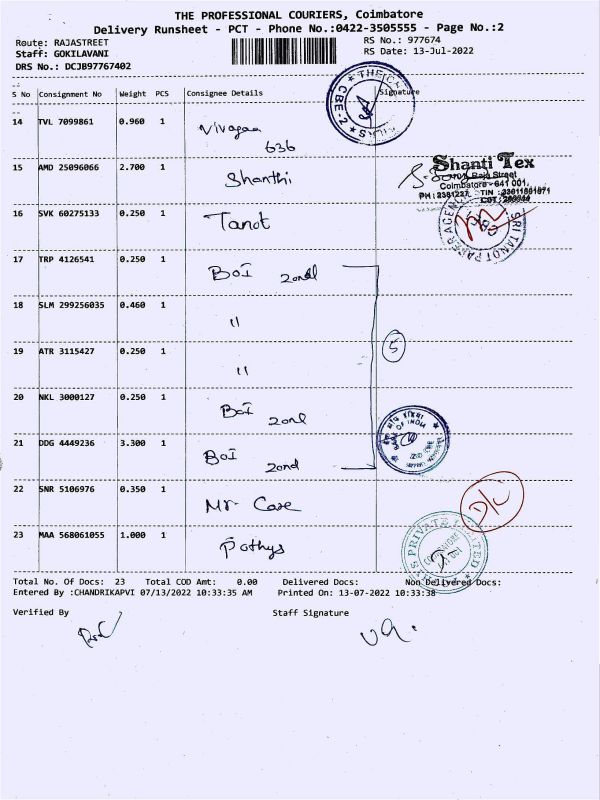 THE PROFESSIONAL COURIERS, Coimbatore
Delivery Runsheet - PCT - Phone No.:0422-3505555 - Page No.:2
Route: RAJASTREET RS No.: 977674
Staff: GOKILAVANI RS Date: 13-Jul-2022
DRS No.: DCJB97767402
S No Consignment No Weight PCS Consignee Details Signature
14 TVL 7099861 0.960 1
636
15 AMD 25096066 2.700 1 Shanthi
Shanti Tex
Raja Street
Coimbatore - 641 001.
16 SVK 60275133 0.250 1 Tanot
SRI TANOT PAPER AGENCY
CBE-1
17 TRP 4126541 0.250 1 BOI 2ond
18 SLM 299256035 0.460 1 "
19 ATR 3115427 0.250 1 "
5
20 NKL 3000127 0.250 1 BOI 2ond
BANK OF INDIA
21 DDG 4449236 3.300 1 BOI 2ond
22 SNR 5106976 0.350 1 Mr. Care
D/L
23 MAA 568061055 1.000 1 Pothys
PRIVATE LIMITED
Total No. Of Docs: 23 Total COD Amt: 0.00 Delivered Docs: Non Delivered Docs:
Entered By :CHANDRIKAPVI 07/13/2022 10:33:35 AM Printed On: 13-07-2022 10:33:38
Verified By Staff Signature